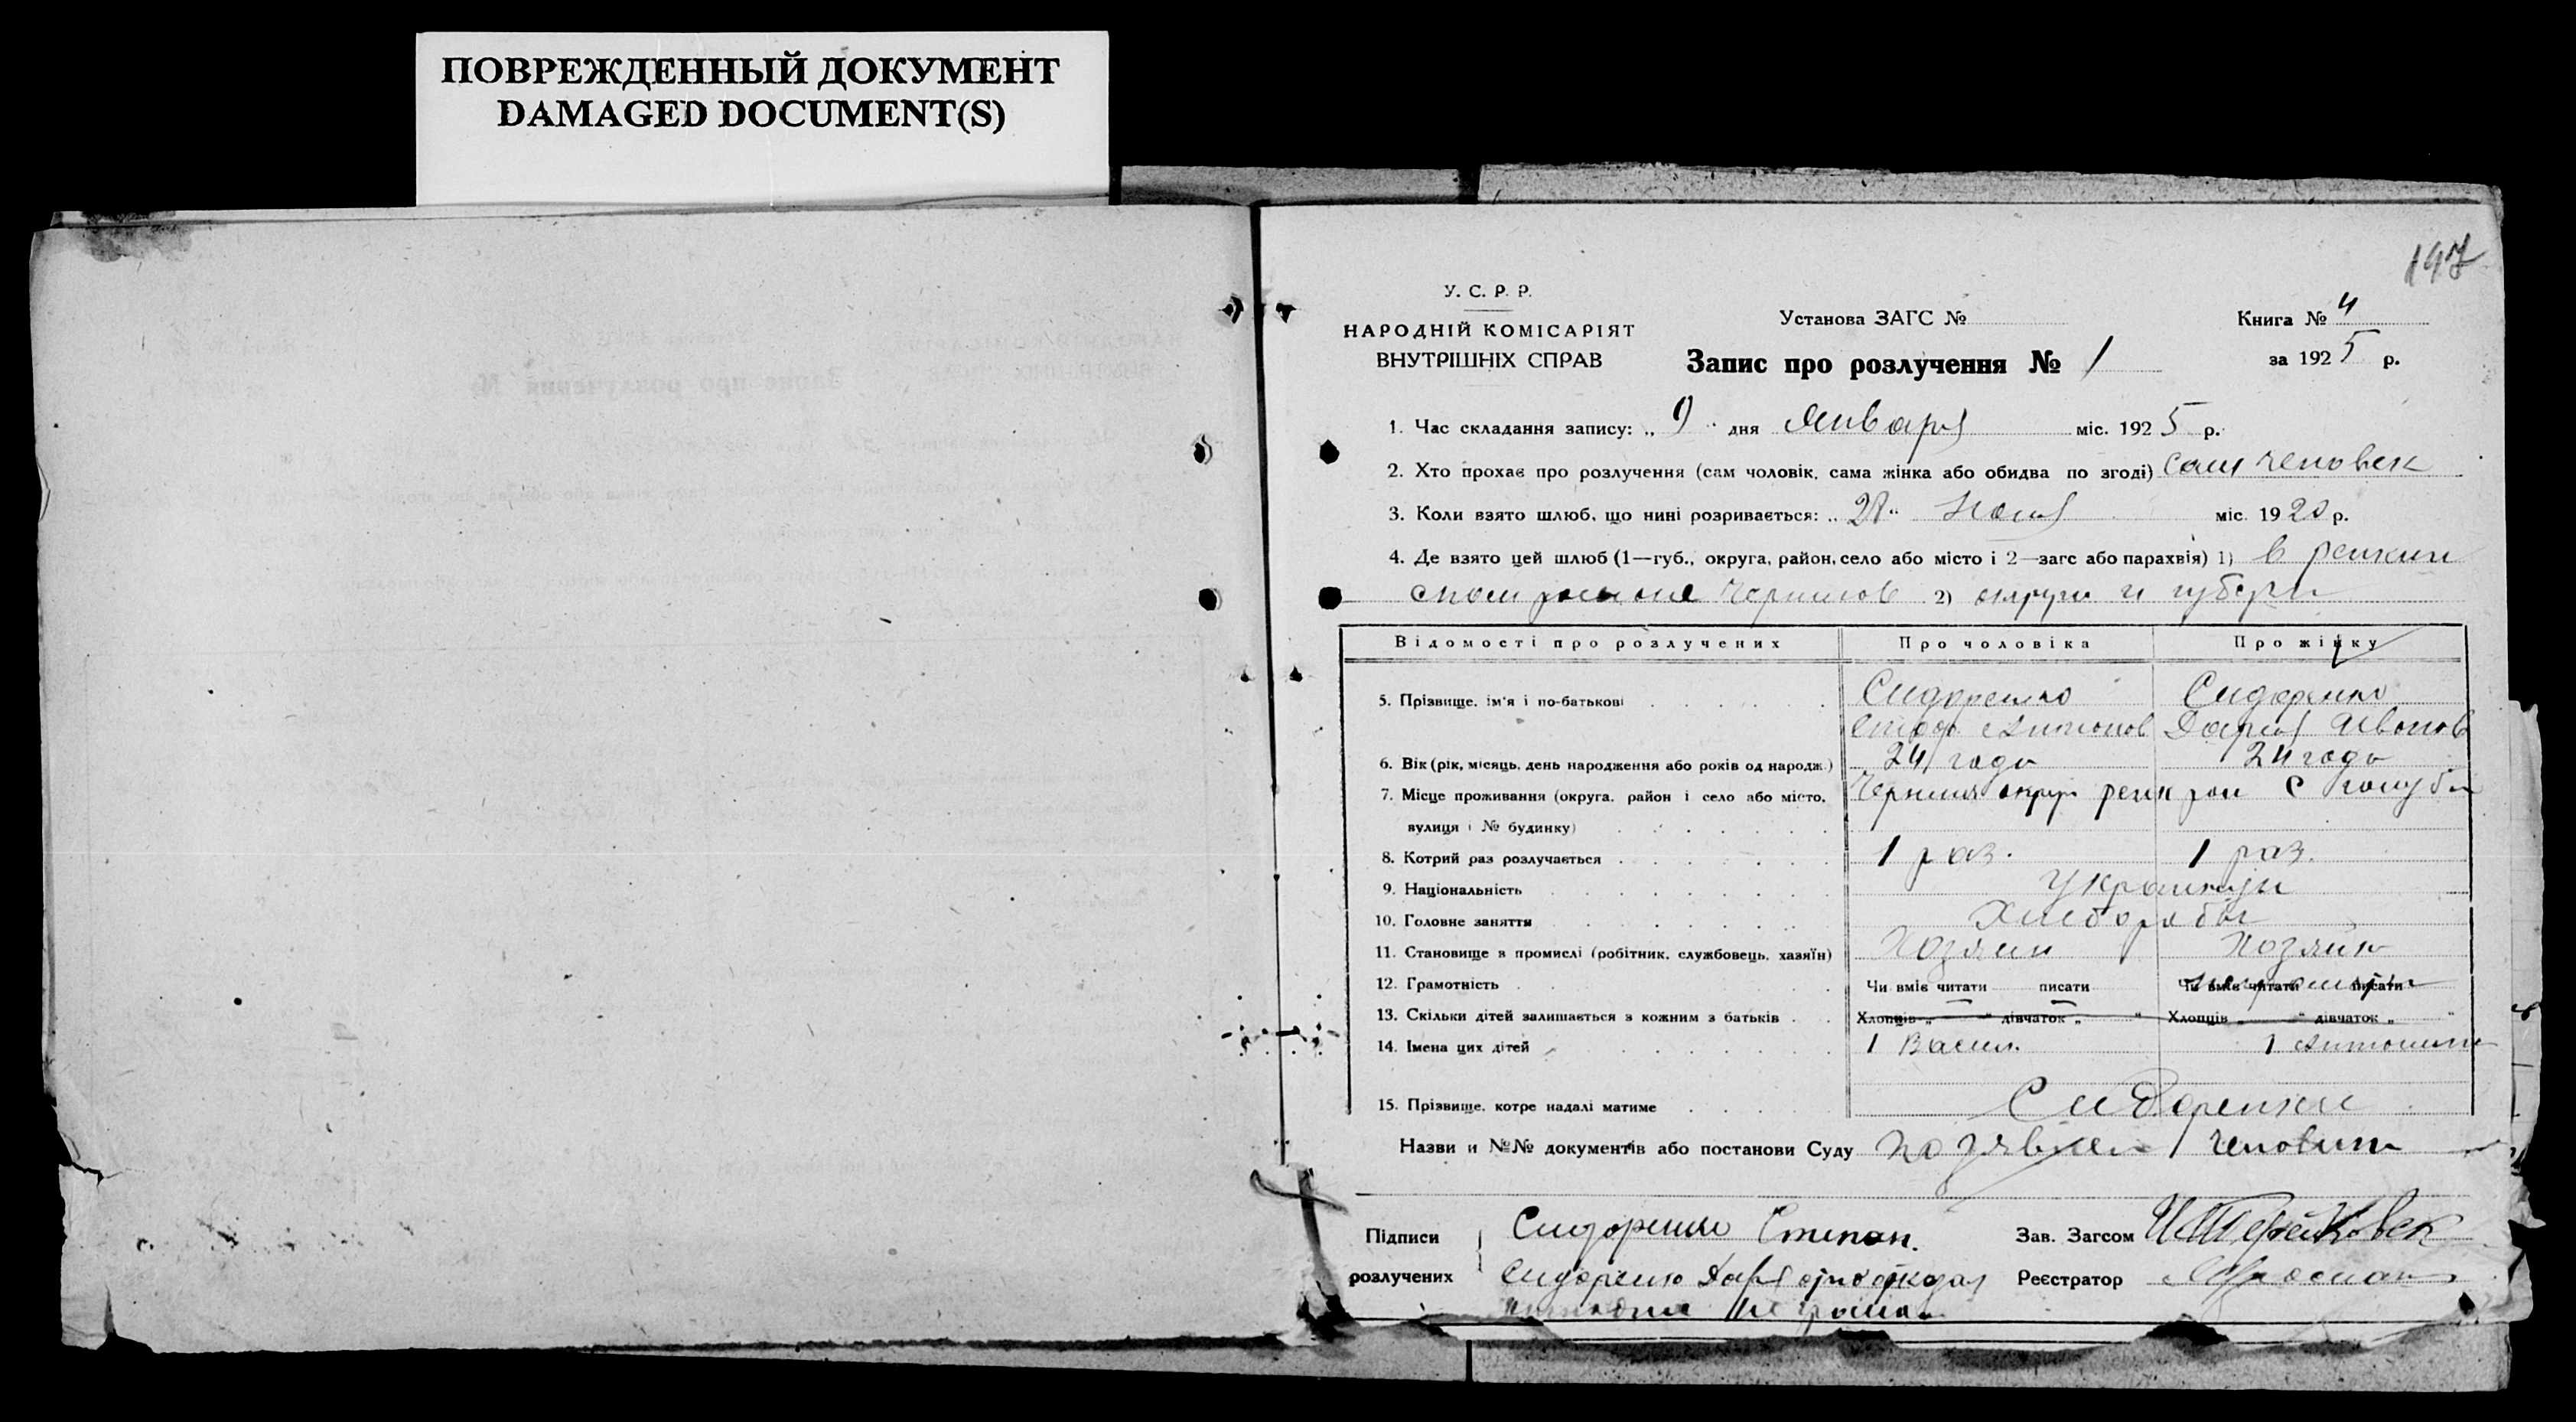 ПОВРЕЖДЕННЫЙ ДОКУМЕНТ
DAMAGED DOCUMENT(S)
197
У. С. Р. Р.
НАРОДНІЙ КОМІСАРІЯТ
ВНУТРІШНІХ СПРАВ
Установа ЗАГС №
Запис про розлучення № 1
Книга № 4
за 1925 р.
1. Час складання запису: „ 9 " дня Января міс. 1925 р.
2. Хто прохає про розлучення (сам чоловік, сама жінка або обидва по згоді) сам человек
3. Коли взято шлюб, що нині розривається: „ 28 " міс. 1920 р.
4. Де взято цей шлюб (1—губ., округа, район, село або місто і 2—загс або парахвія) 1) в репкин
2) округи и губерн
Відомості про розлучених Про чоловіка Про жінку
5. Прізвище, ім'я і по-батькові Сидоренко Сидоренко
Антонов Дария Ивонов
6. Вік (рік, місяць, день народження або років од народж.) 24 года 24 года
7. Місце проживання (округа, район і село або місто, Черниг округ репк рон с голуби
вулиця і № будинку)
8. Котрий раз розлучається 1 раз. 1 раз.
9. Національність Украинцы
10. Головне заняття Хлеборобы
11. Становище в промислі (робітник, службовець, хазяїн) Хозяин Хозяйк
12. Грамотність Чи вміє читати — писати — Чи вміє читати писати
13. Скільки дітей залишається з кожним з батьків Хлопців „ " дівчаток „ " Хлопців „ " дівчаток „ "
14. Імена цих дітей 1 Васил. 1 Антонина
15. Прізвище, котре надалі матиме Сидоренки
Назви и №№ документів або постанови Суду по заявлен 1
Підписи
розлучених
Сидоренко Степан.
Сидоренко Дария
Зав. Загсом
Реєстратор